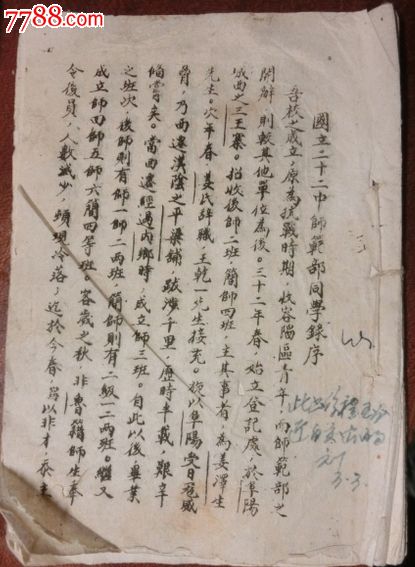 7788.com
國立二十二中師範部同學錄序
吾校之成立，原為抗戰時期，收容陷區青年，而師範部之
開辦，則較其他單位為後。三十二年春，始立登記處於阜陽
城西之三王寨。招收後師二班，簡師四班，主其事者，為姜澤生
先生。次年春，姜氏辭職，王乾一先生接充。旋以阜陽受日寇威
脅，乃西遷漢陰之平梁鋪，跋涉千里，歷時半載，艱辛
備嘗矣。當西遷經過內鄉時，成立師三班。自此以後畢業
之班次，後師則有師一師二兩班，簡師則有二級一二兩班。繼又
成立師四師五師六簡四等班。客歲之秋，非魯籍師生奉
令復員，人數減少，頓現冷落。迄於今春，以非才，忝主
3.3.